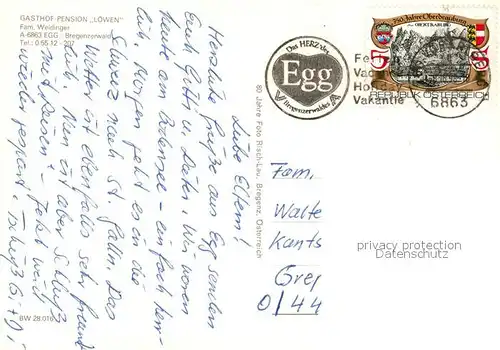 GASTHOF-PENSION „LÖWEN"
Fam. Weidinger
A-6863 EGG, Bregenzerwald
Tel.: 0 55 12 - 207
Liebe Eltern!
Herzliche Grüße aus Egg senden
Euch Gitti u. Dieter. Wir waren
heute am Bodensee - einfach herr-
lich. Morgen geht es in die
Schweiz nach St. Gallen. Das
Wetter ist ebenfalls sehr freund-
lich. Nun ist aber Schluß
mit - jetzt wird
wieder gespart. Tschüß Gitti
BW 28.016
80 Jahre Foto Risch-Lau, Bregenz, Österreich
Das HERZ des
Egg
Bregenzerwaldes
250 Jahre Oberdrauburg
REPUBLIK ÖSTERREICH
Fe
Vac
Ho
Vakantie
6863
Fam.
Walte
Kants
Grei
0/44
privacy protection
Datenschutz